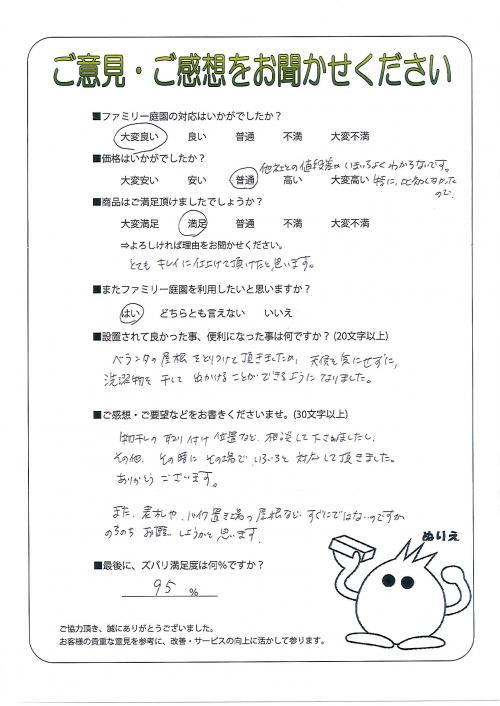 ご意見・ご感想をお聞かせください
■ファミリー庭園の対応はいかがでしたか？
大変良い 良い 普通 不満 大変不満
■価格はいかがでしたか？
他社との値段差がいまいちよくわからないです。
大変安い 安い 普通 高い 大変高い 特に、比較しなかった
ので
■商品はご満足頂けましたでしょうか？
大変満足 満足 普通 不満 大変不満
⇒よろしければ理由をお聞かせください。
とても キレイに仕上げて頂けたと思います。
■またファミリー庭園を利用したいと思いますか？
はい どちらとも言えない いいえ
■設置されて良かった事、便利になった事は何ですか？ (20文字以上)
ベランダの屋根をとりつけて頂きましたため、天候を気にせずに、
洗濯物を干して出かけることができるようになりました。
■ご感想・ご要望などをお書きくださいませ。(30文字以上)
物干しの取り付け位置など、相談して下さいましたし、
その他、その時にその場でいろいろと対応して頂きました。
ありがとうございます。
また、表札や、バイク置き場の屋根など、すぐにではないのですが
のちのちお願いしようかと思います。
ぬりえ
■最後に、ズバリ満足度は何%ですか？
95 %
ご協力頂き、誠にありがとうございました。
お客様の貴重な意見を参考に、改善・サービスの向上に活かして参ります。